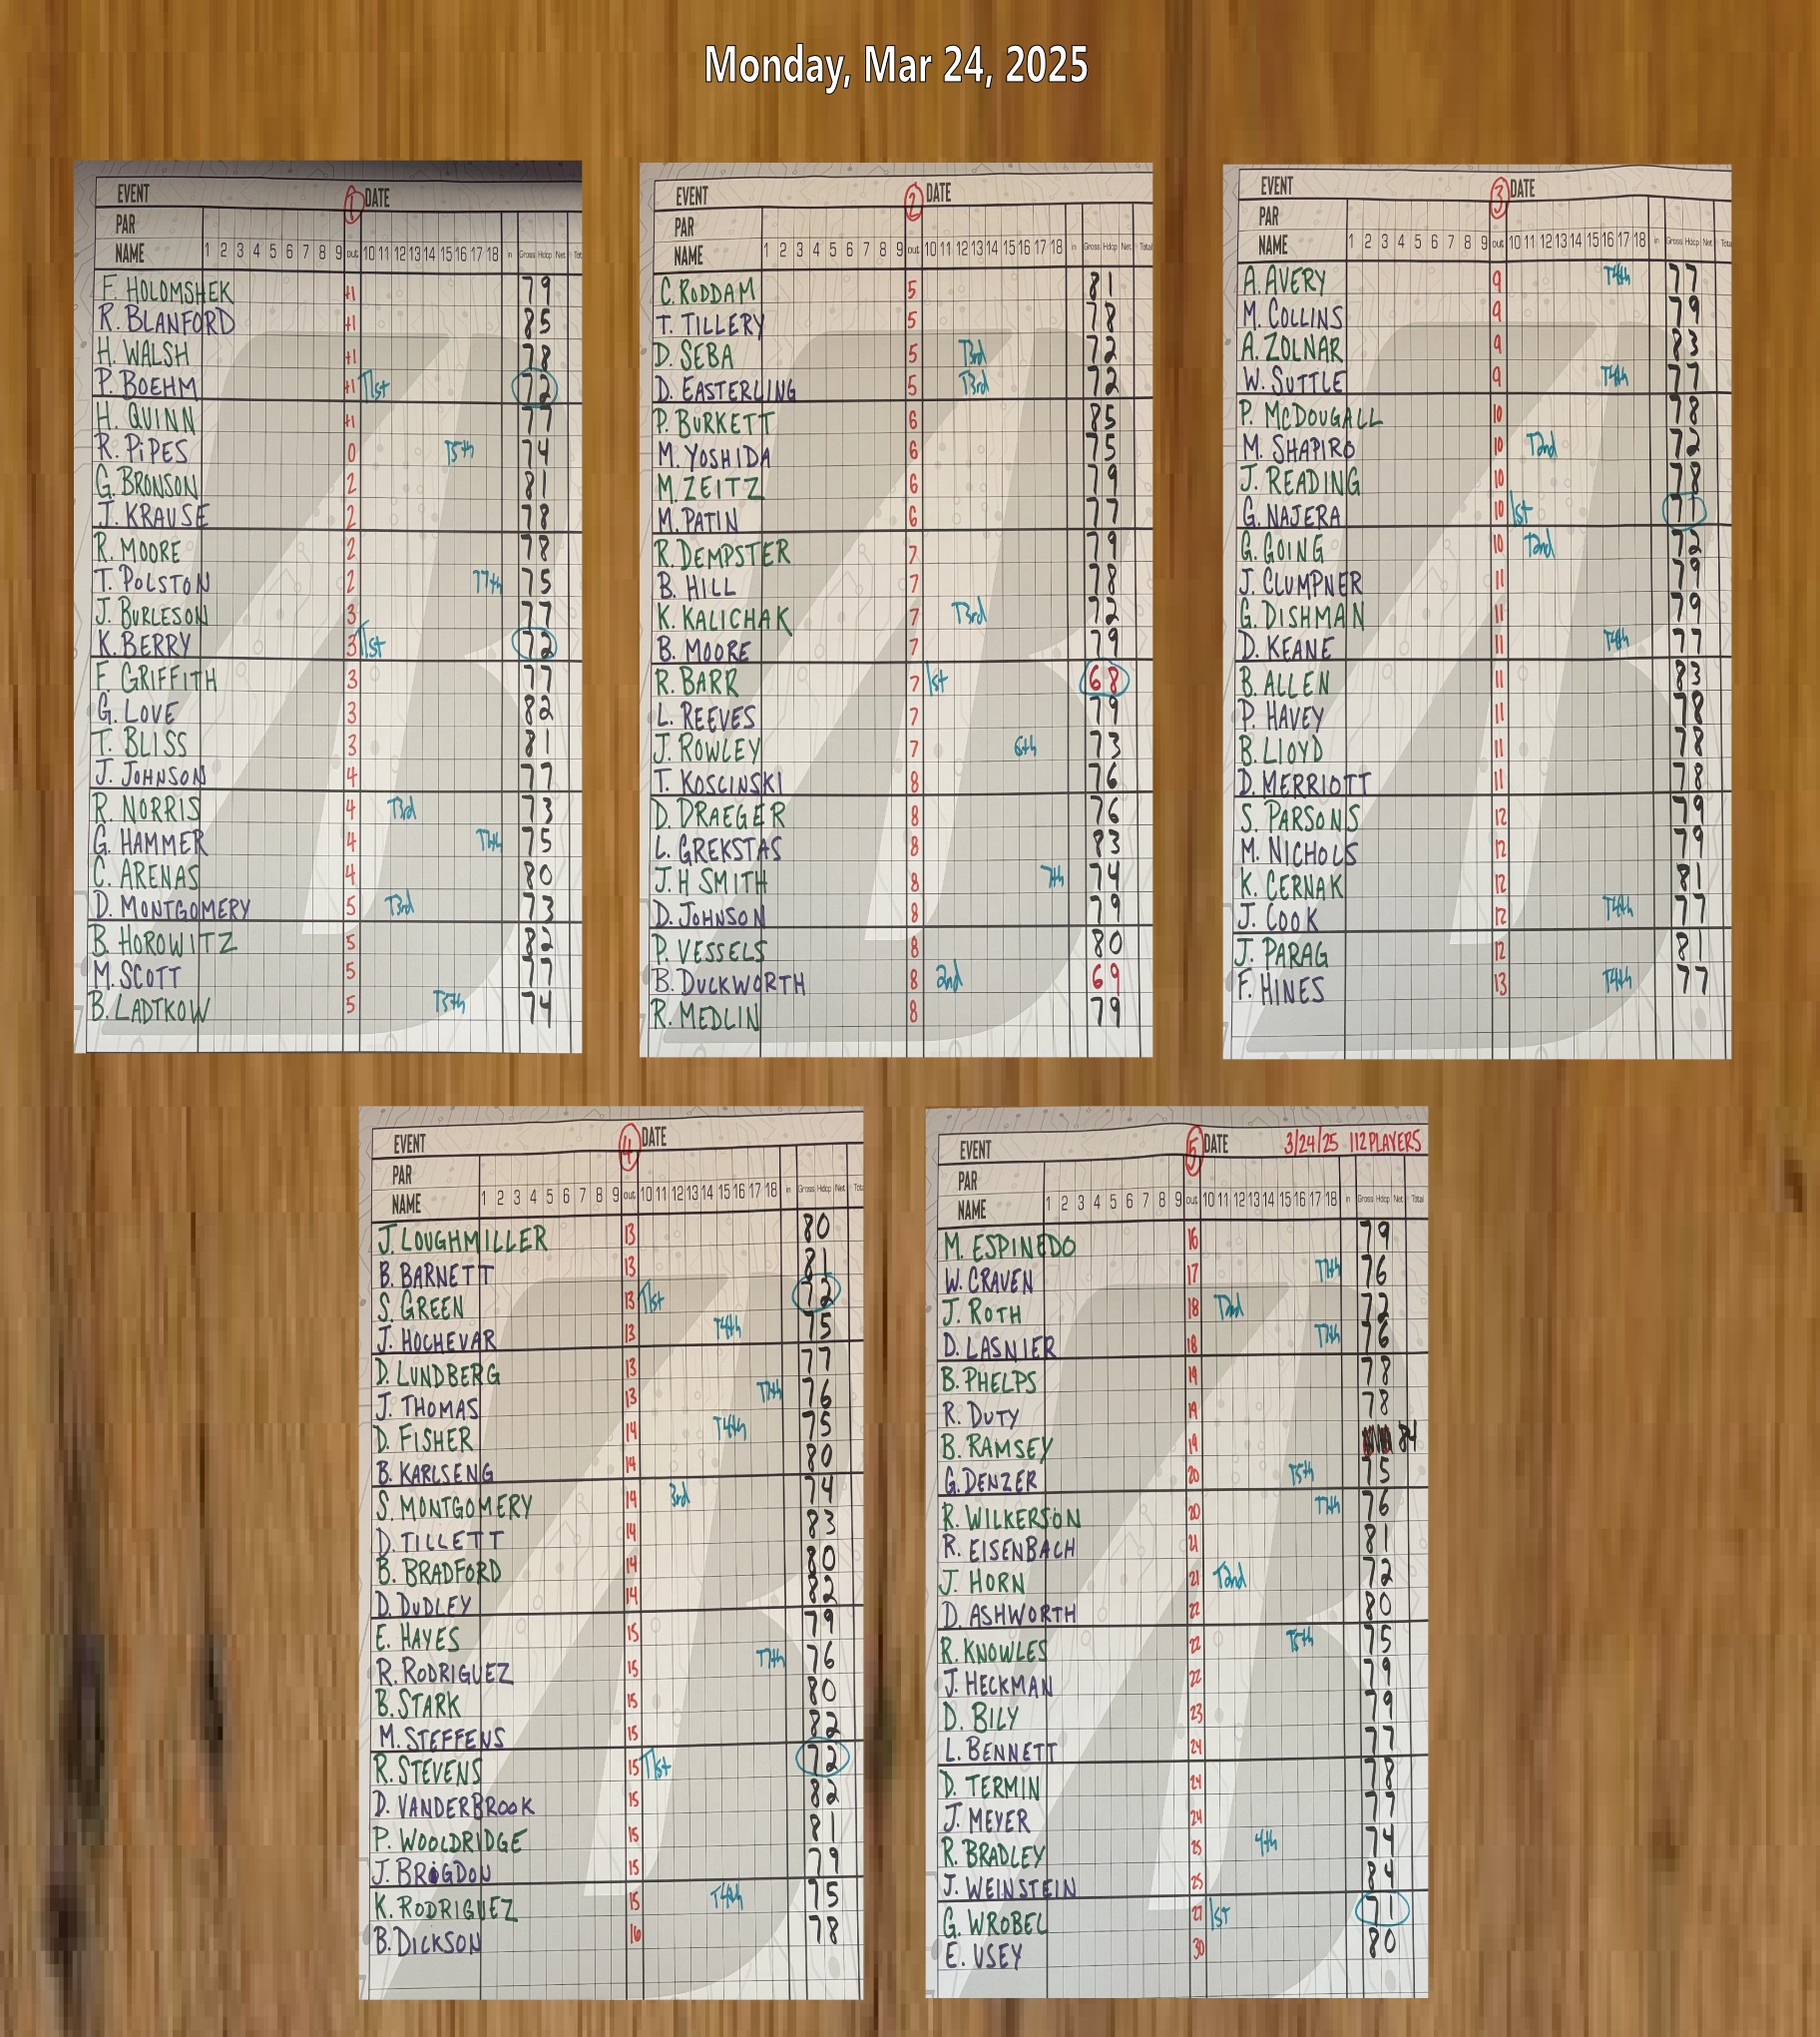 Monday, Mar 24, 2025
EVENT 1 DATE
PAR
NAME 1 2 3 4 5 6 7 8 9 out 10 11 12 13 14 15 16 17 18 in Gross Hdcp Net
F. HOLOMSHEK +1 79
R. BLANFORD +1 85
H. WALSH +1 78
P. BOEHM +1 T1st 72
H. QUINN +1 77
R. PIPES 0 T5th 74
G. BRONSON 2 81
J. KRAUSE 2 78
R. MOORE 2 78
T. POLSTON 2 T7th 75
J. BURLESON 3 77
K. BERRY 3 T1st 72
F. GRIFFITH 3 77
G. LOVE 3 82
T. BLISS 3 81
J. JOHNSON 4 77
R. NORRIS 4 T3rd 73
G. HAMMER 4 T7th 75
C. ARENAS 4 80
D. MONTGOMERY 5 T3rd 73
B. HOROWITZ 5 82
M. SCOTT 5 77
B. LADTKOW 5 T5th 74
EVENT 2 DATE
PAR
NAME 1 2 3 4 5 6 7 8 9 out 10 11 12 13 14 15 16 17 18 in Gross Hdcp Net Total
C. RODDAM 5 81
T. TILLERY 5 78
D. SEBA 5 T3rd 72
D. EASTERLING 5 T3rd 72
P. BURKETT 6 85
M. YOSHIDA 6 75
M. ZEITZ 6 79
M. PATIN 6 77
R. DEMPSTER 7 79
B. HILL 7 78
K. KALICHAK 7 T3rd 72
B. MOORE 7 79
R. BARR 7 1st 68
L. REEVES 7 79
J. ROWLEY 7 6th 73
T. KOSCINSKI 8 76
D. DRAEGER 8 76
L. GREKSTAS 8 83
J.H SMITH 8 7th 74
D. JOHNSON 8 79
P. VESSELS 8 80
B. DUCKWORTH 8 2nd 69
R. MEDLIN 8 79
EVENT 3 DATE
PAR
NAME 1 2 3 4 5 6 7 8 9 out 10 11 12 13 14 15 16 17 18 in Gross Hdcp Net
A. AVERY 9 T4th 77
M. COLLINS 9 79
A. ZOLNAR 9 83
W. SUTTLE 9 T4th 77
P. McDOUGALL 10 78
M. SHAPIRO 10 T2nd 72
J. READING 10 78
G. NAJERA 10 1st 71
G. GOING 10 T2nd 72
J. CLUMPNER 11 79
G. DISHMAN 11 79
D. KEANE 11 T4th 77
B. ALLEN 11 83
P. HAVEY 11 78
B. LIOYD 11 78
D. MERRIOTT 11 78
S. PARSONS 12 79
M. NICHOLS 12 79
K. CERNAK 12 81
J. COOK 12 T4th 77
J. PARAG 12 81
F. HINES 13 T4th 77
EVENT 4 DATE
PAR
NAME 1 2 3 4 5 6 7 8 9 out 10 11 12 13 14 15 16 17 18 in Gross Hdcp Net
J. LOUGHMILLER 13 80
B. BARNETT 13 81
S. GREEN 13 T1st 72
J. HOCHEVAR 13 T4th 75
D. LUNDBERG 13 77
J. THOMAS 13 T7th 76
D. FISHER 14 T4th 75
B. KARLSENG 14 80
S. MONTGOMERY 14 3rd 74
D. TILLETT 14 83
B. BRADFORD 14 80
D. DUDLEY 14 82
E. HAYES 15 79
R. RODRIGUEZ 15 T7th 76
B. STARK 15 80
M. STEFFENS 15 82
R. STEVENS 15 T1st 72
D. VANDERBROOK 15 82
P. WOOLDRIDGE 15 81
J. BRIGDON 15 79
K. RODRIGUEZ 15 T4th 75
B. DICKSON 16 78
EVENT 5 DATE 3/24/25 112 PLAYERS
PAR
NAME 1 2 3 4 5 6 7 8 9 out 10 11 12 13 14 15 16 17 18 in Gross Hdcp Net Total
M. ESPINEDO 16 79
W. CRAVEN 17 T7th 76
J. ROTH 18 T2nd 72
D. LASNIER 18 T7th 76
B. PHELPS 19 78
R. DUTY 19 78
B. RAMSEY 19 84
G. DENZER 20 T5th 75
R. WILKERSON 20 T7th 76
R. EISENBACH 21 81
J. HORN 21 T2nd 72
D. ASHWORTH 22 80
R. KNOWLES 22 T5th 75
J. HECKMAN 22 79
D. BILY 23 79
L. BENNETT 24 77
D. TERMIN 24 78
J. MEYER 24 77
R. BRADLEY 25 4th 74
J. WEINSTEIN 25 84
G. WROBEL 27 1st 71
E. USEY 30 80